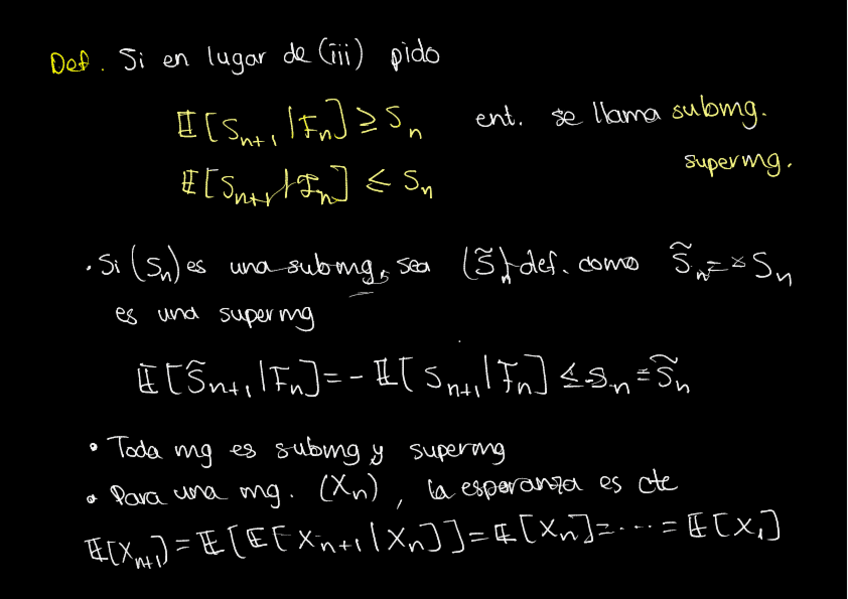 Def. Si en lugar de (iii) pido
𝔼[S_{n+1} | F_n] ≥ S_n ent. se llama submg.
𝔼[S_{n+1} | F_n] ≤ S_n supermg.
• Si (S_n) es una submg, sea (S̃_n) def. como S̃_n = -S_n
es una supermg
𝔼[S̃_{n+1} | F_n] = - 𝔼[S_{n+1} | F_n] ≤ -S_n = S̃_n
• Toda mg es submg y supermg
• Para una mg. (X_n), la esperanza es cte
𝔼[X_{n+1}] = 𝔼[𝔼[X_{n+1} | X_n]] = 𝔼[X_n] = ··· = 𝔼[X_1]